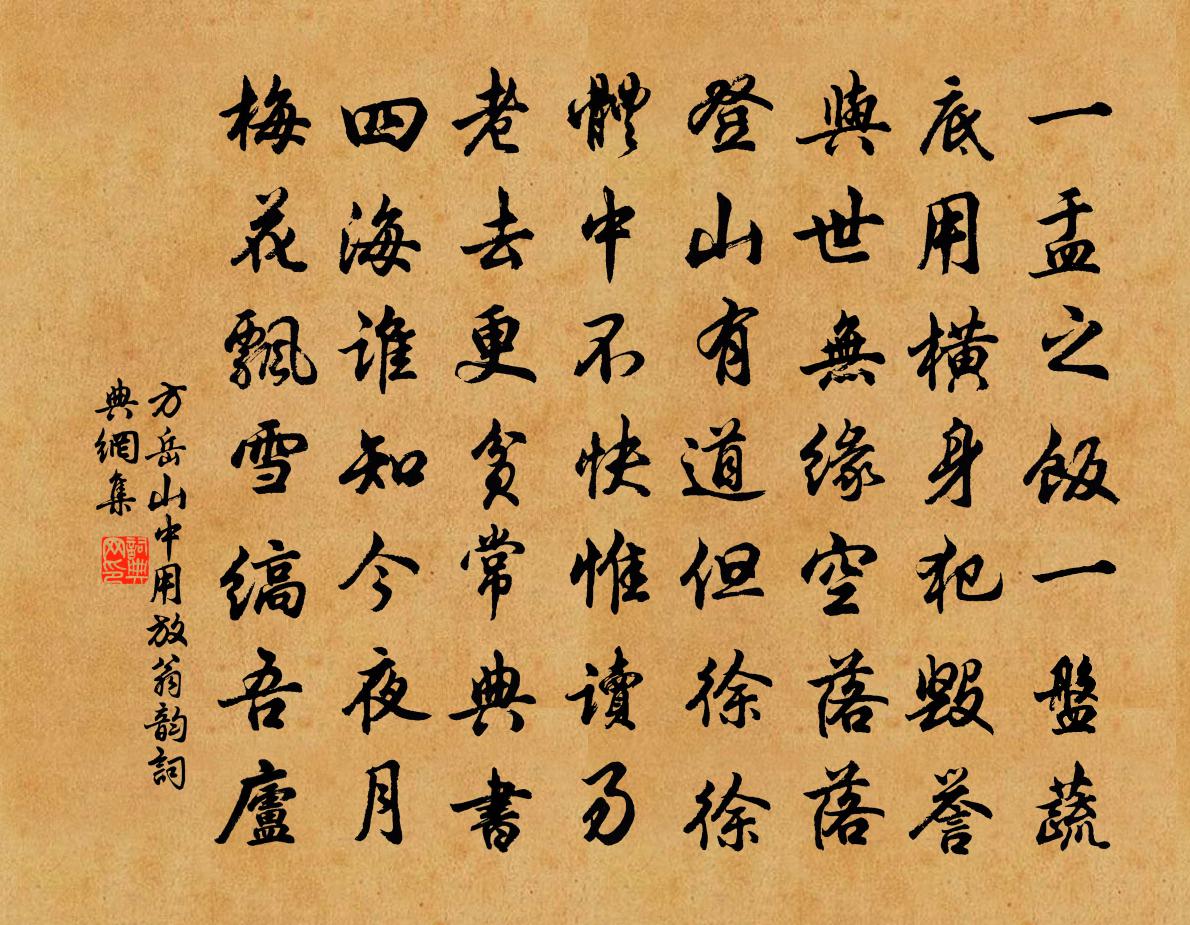 一盂之飯一盤蔬
底用橫身犯毀譽
與世無緣空落落
登山有道但徐徐
體中不快惟讀易
老去更貧常典書
四海誰知今夜月
梅花飄雪縞吾廬
方岳山中用放翁韵詞
典網集
詞典
网印